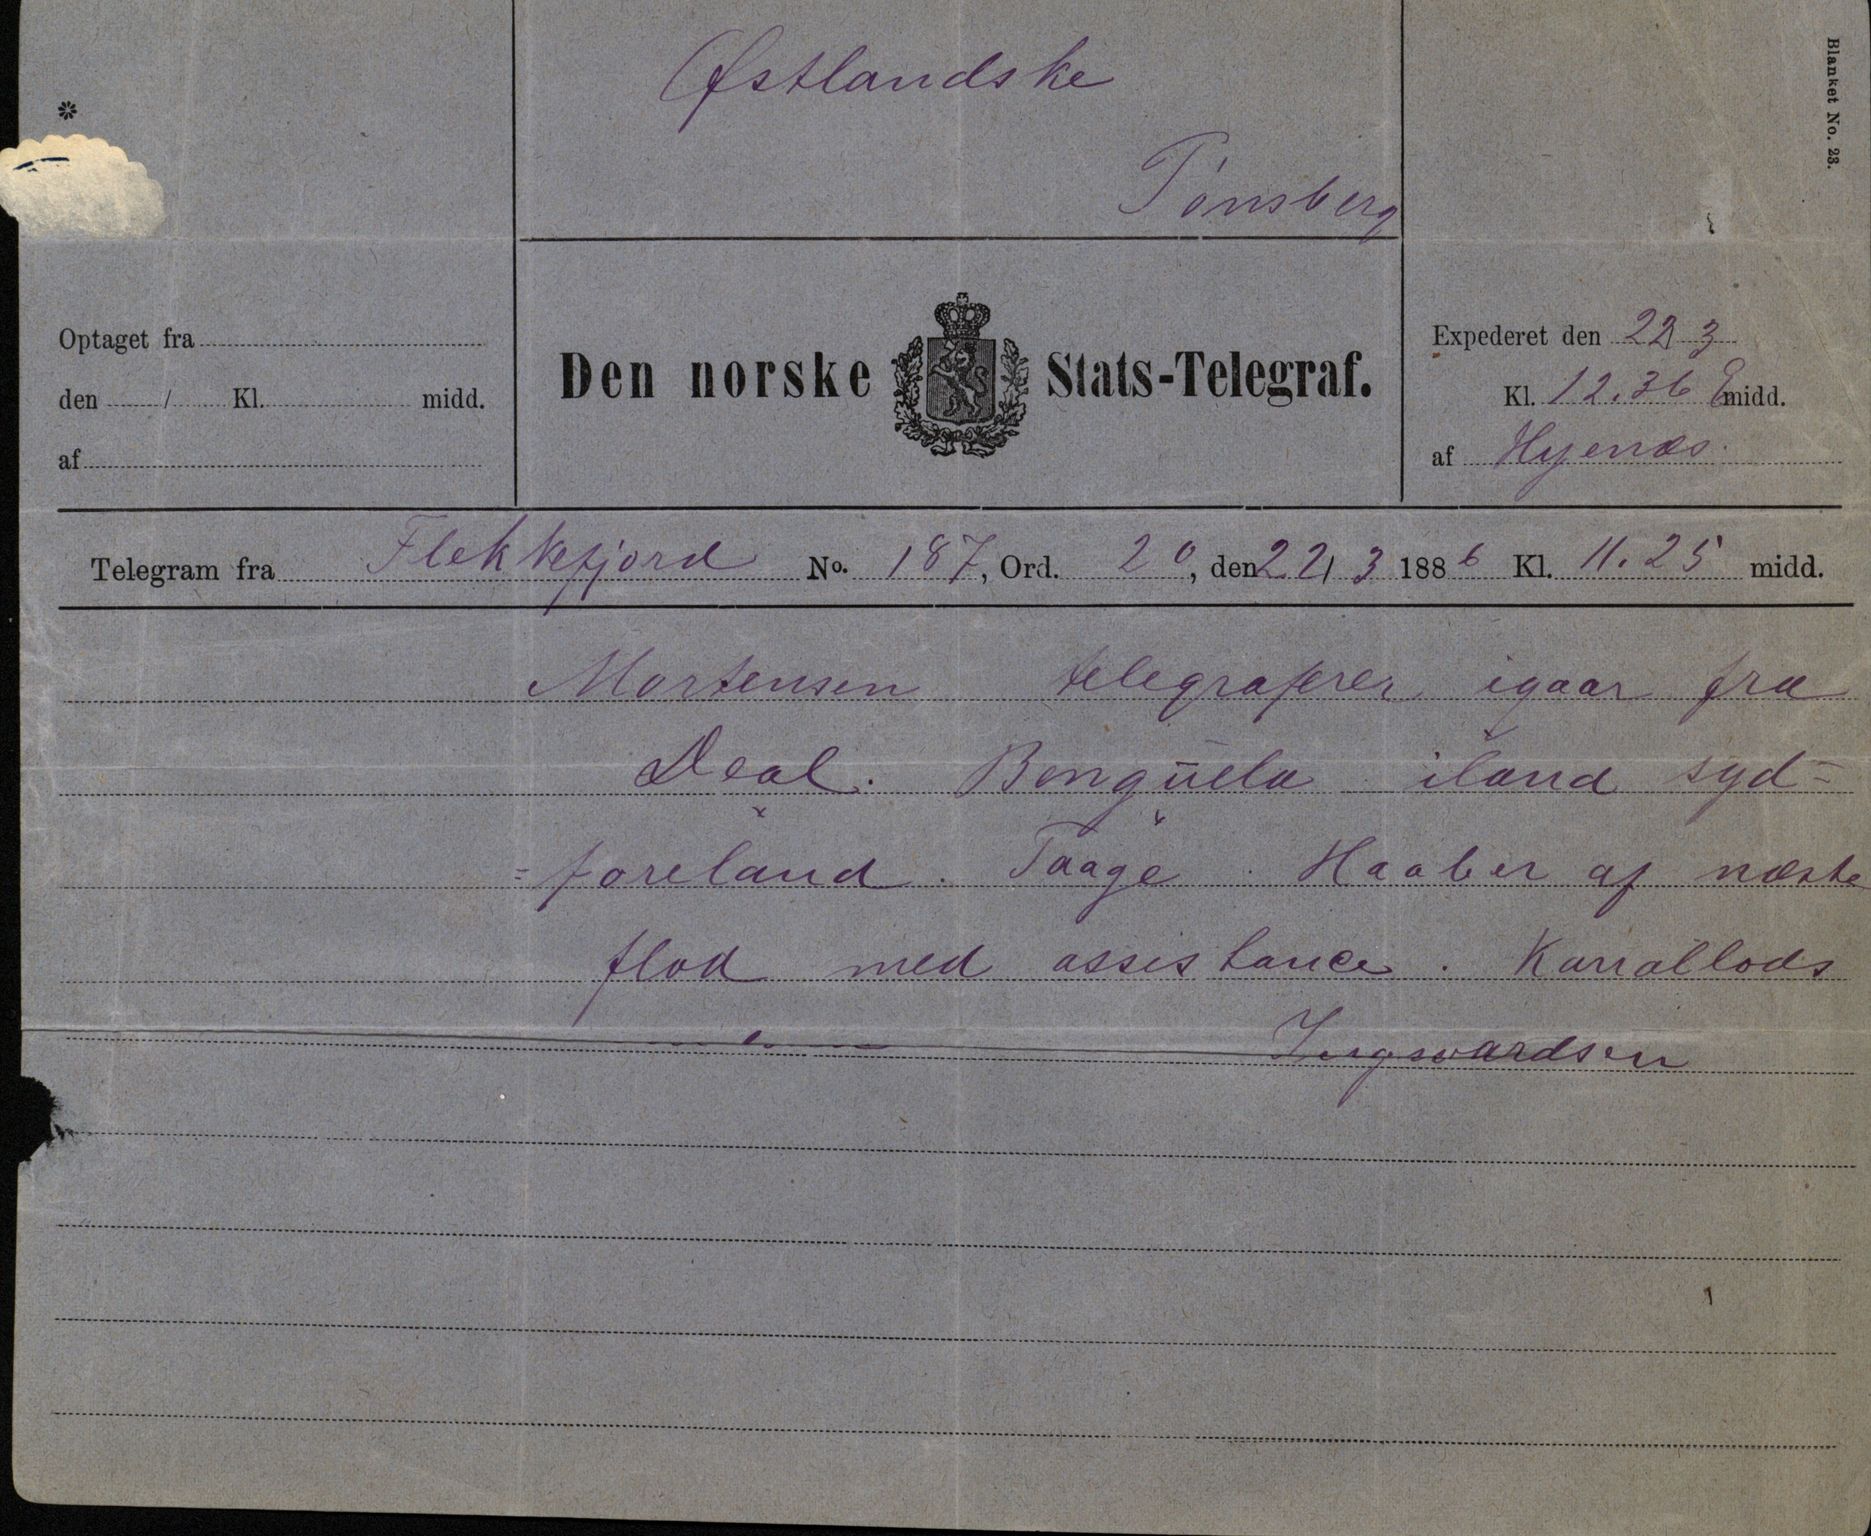 Østlandske
Tønsberg
Blanket No. 23.
*
Optaget fra
den / Kl. midd.
af
Den norske Stats-Telegraf.
Expederet den 22/3
Kl. 12.36 E midd.
af Hyenæs.
Telegram fra Flekkefjord No. 187, Ord. 20, den 22/3 1886 Kl. 11.25 midd.
Mortensen telegraferer igaar fra
Deal. Benguela iland syd=
=foreland. Taage. Haaber af næste
flod med assistance. Kanallods
Ingvardsen